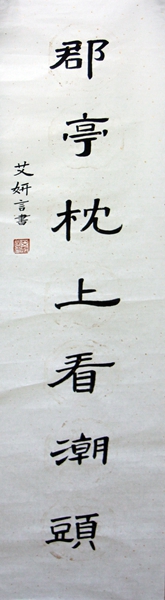 郡亭枕上看潮頭
艾妍言書